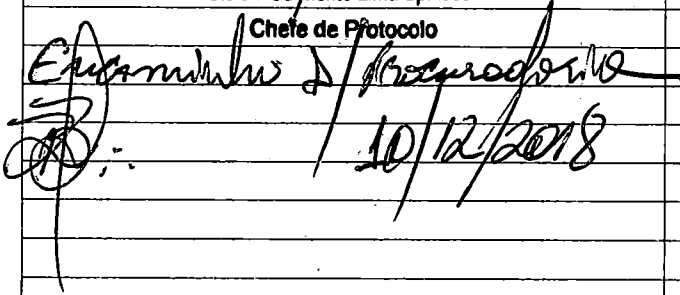 Chefe de Protocolo
Encaminho à Procuradoria
10/12/2018